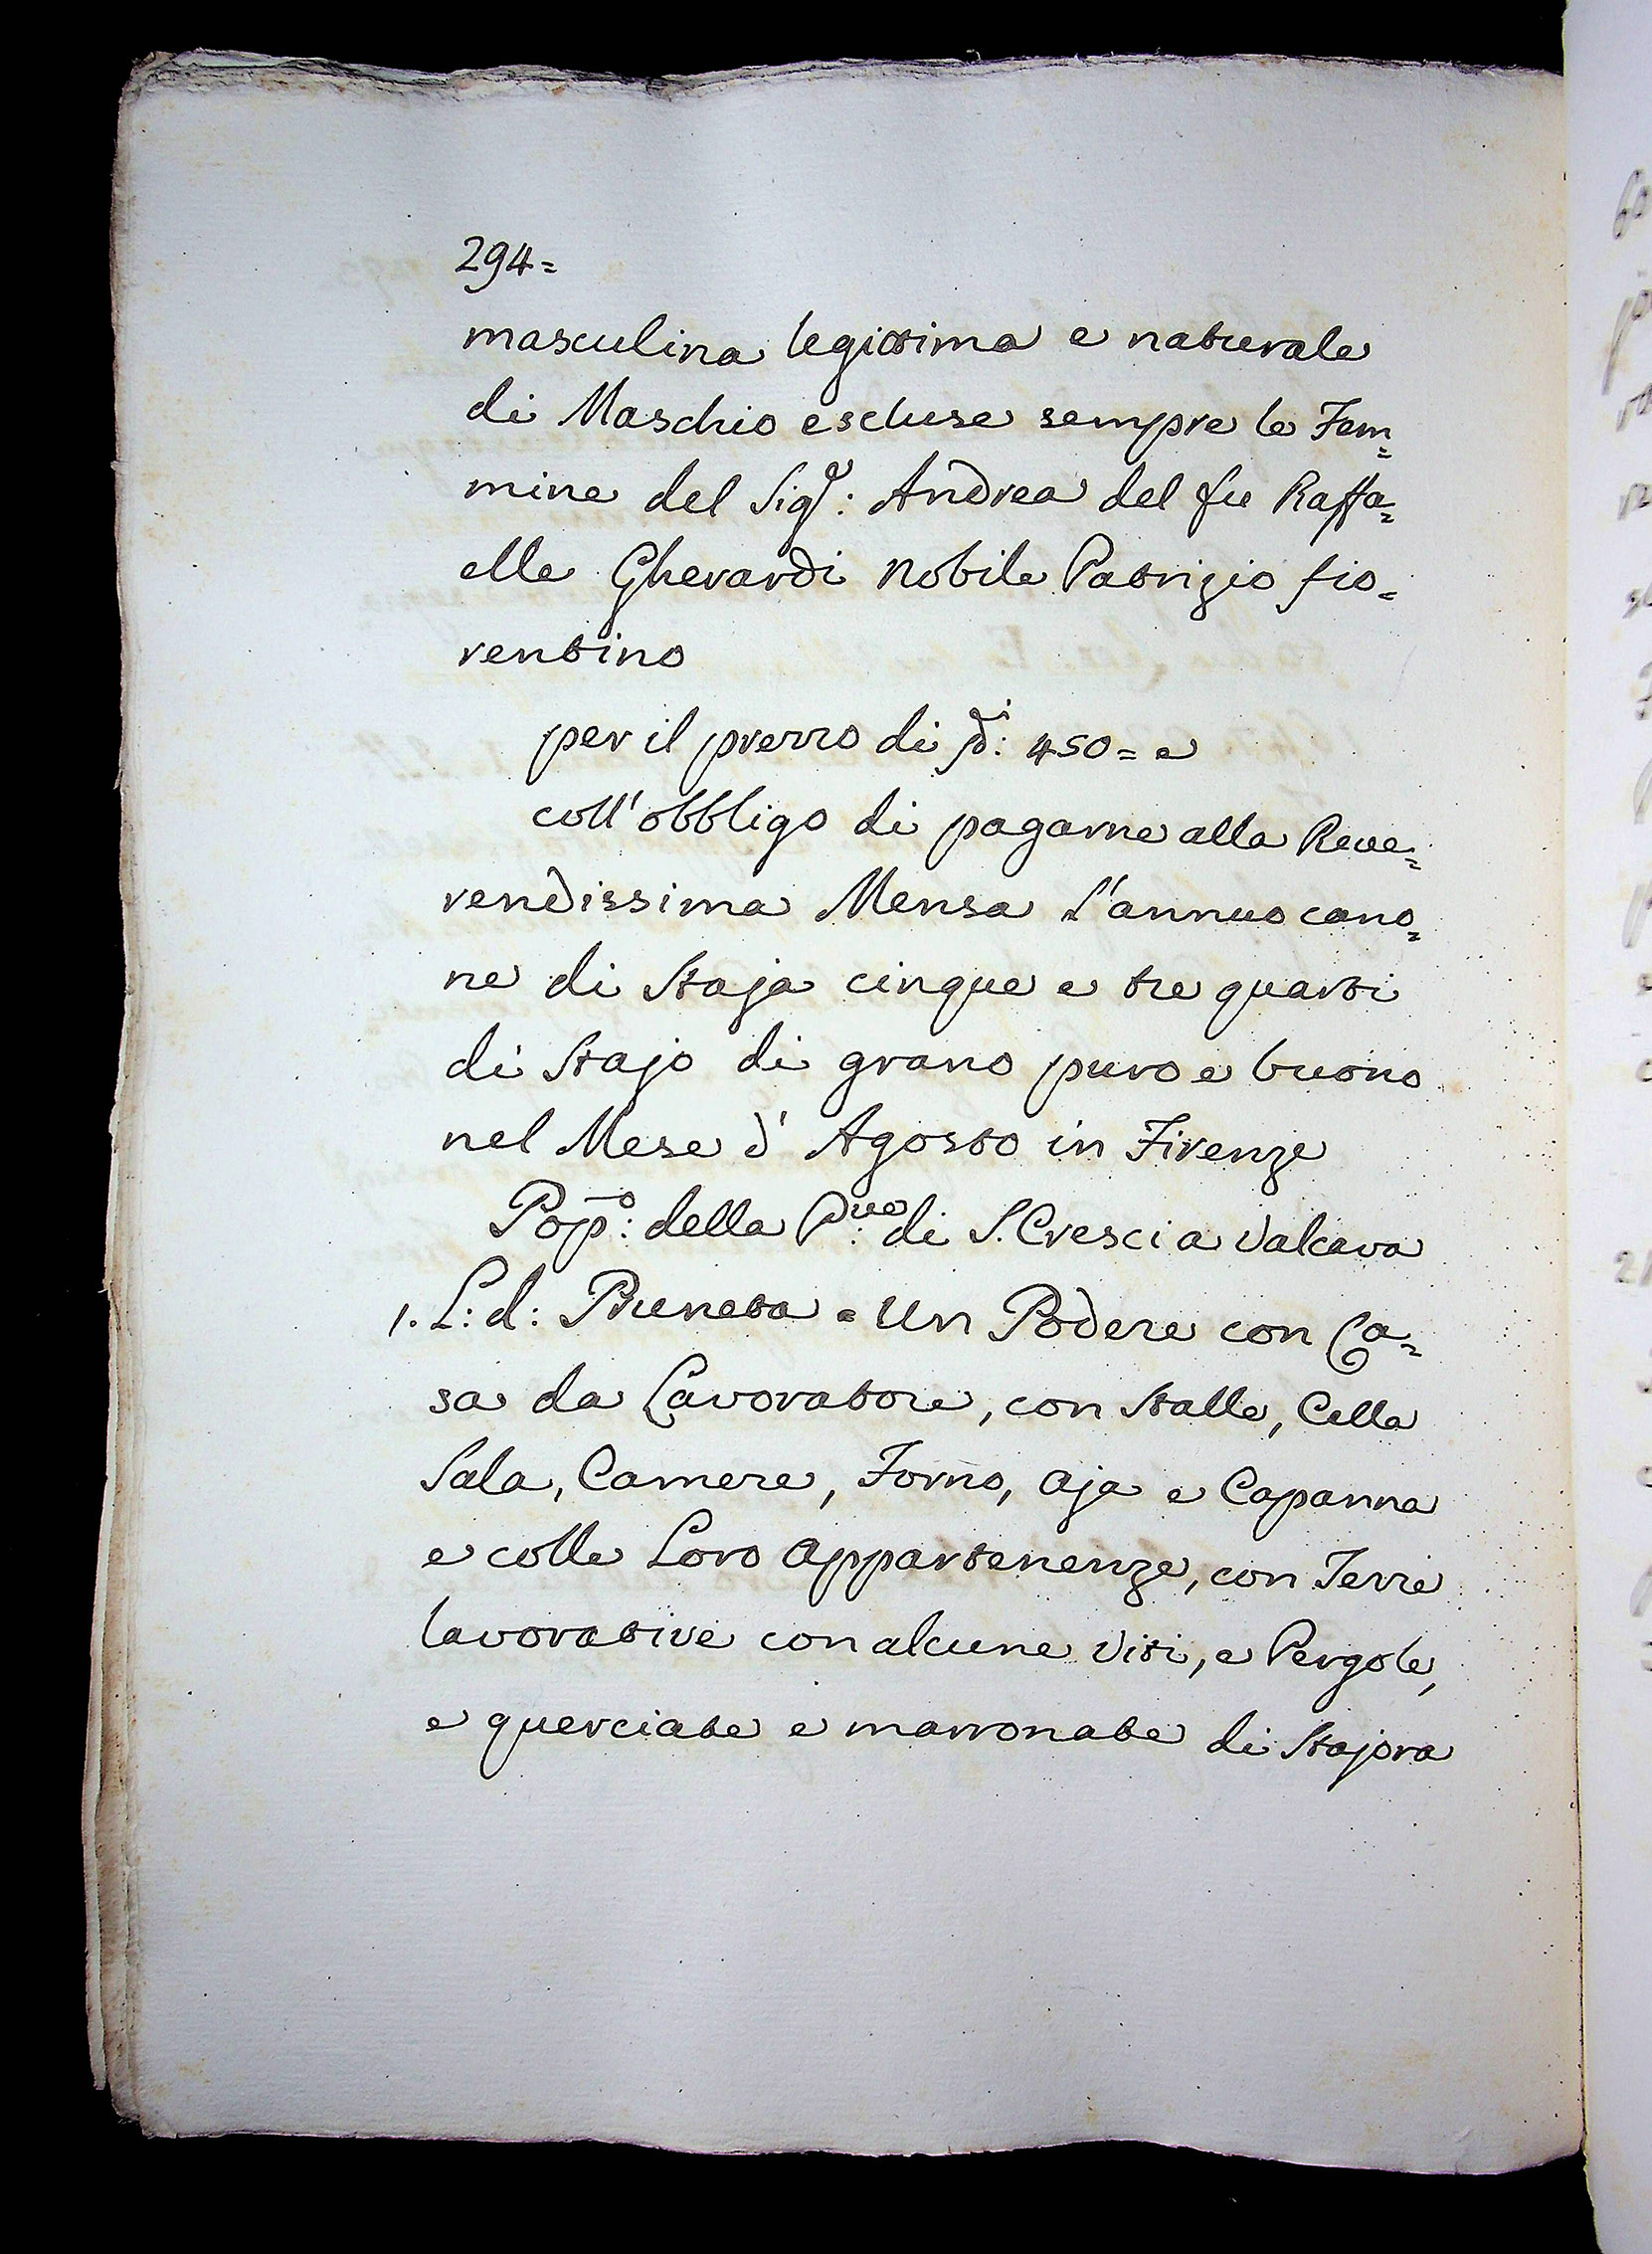 294=
masculina legittima e naturale
di Maschio escluse sempre le Fem=
mine del Sigr: Andrea del fu Raffa=
elle Gherardi Nobile Patrizio fio=
rentino
per il prezzo di 450= e
coll'obbligo di pagarne alla Reve=
rendissima Mensa l'annuo cano=
ne di Staja cinque e tre quarti
di Stajo di grano puro e buono
nel Mese d'Agosto in Firenze
Popo: della Pve: di S. Cresci a Valcava
1. L: d: Pruneta = Un Podere con Ca=
sa da Lavoratore, con Stalle, Cella
Sala, Camere, Forno, Aja e Capanna
e colle Loro Appartenenze, con Terre
lavorative con alcune Viti, e Pergole,
e querciate e marronate di Stajora